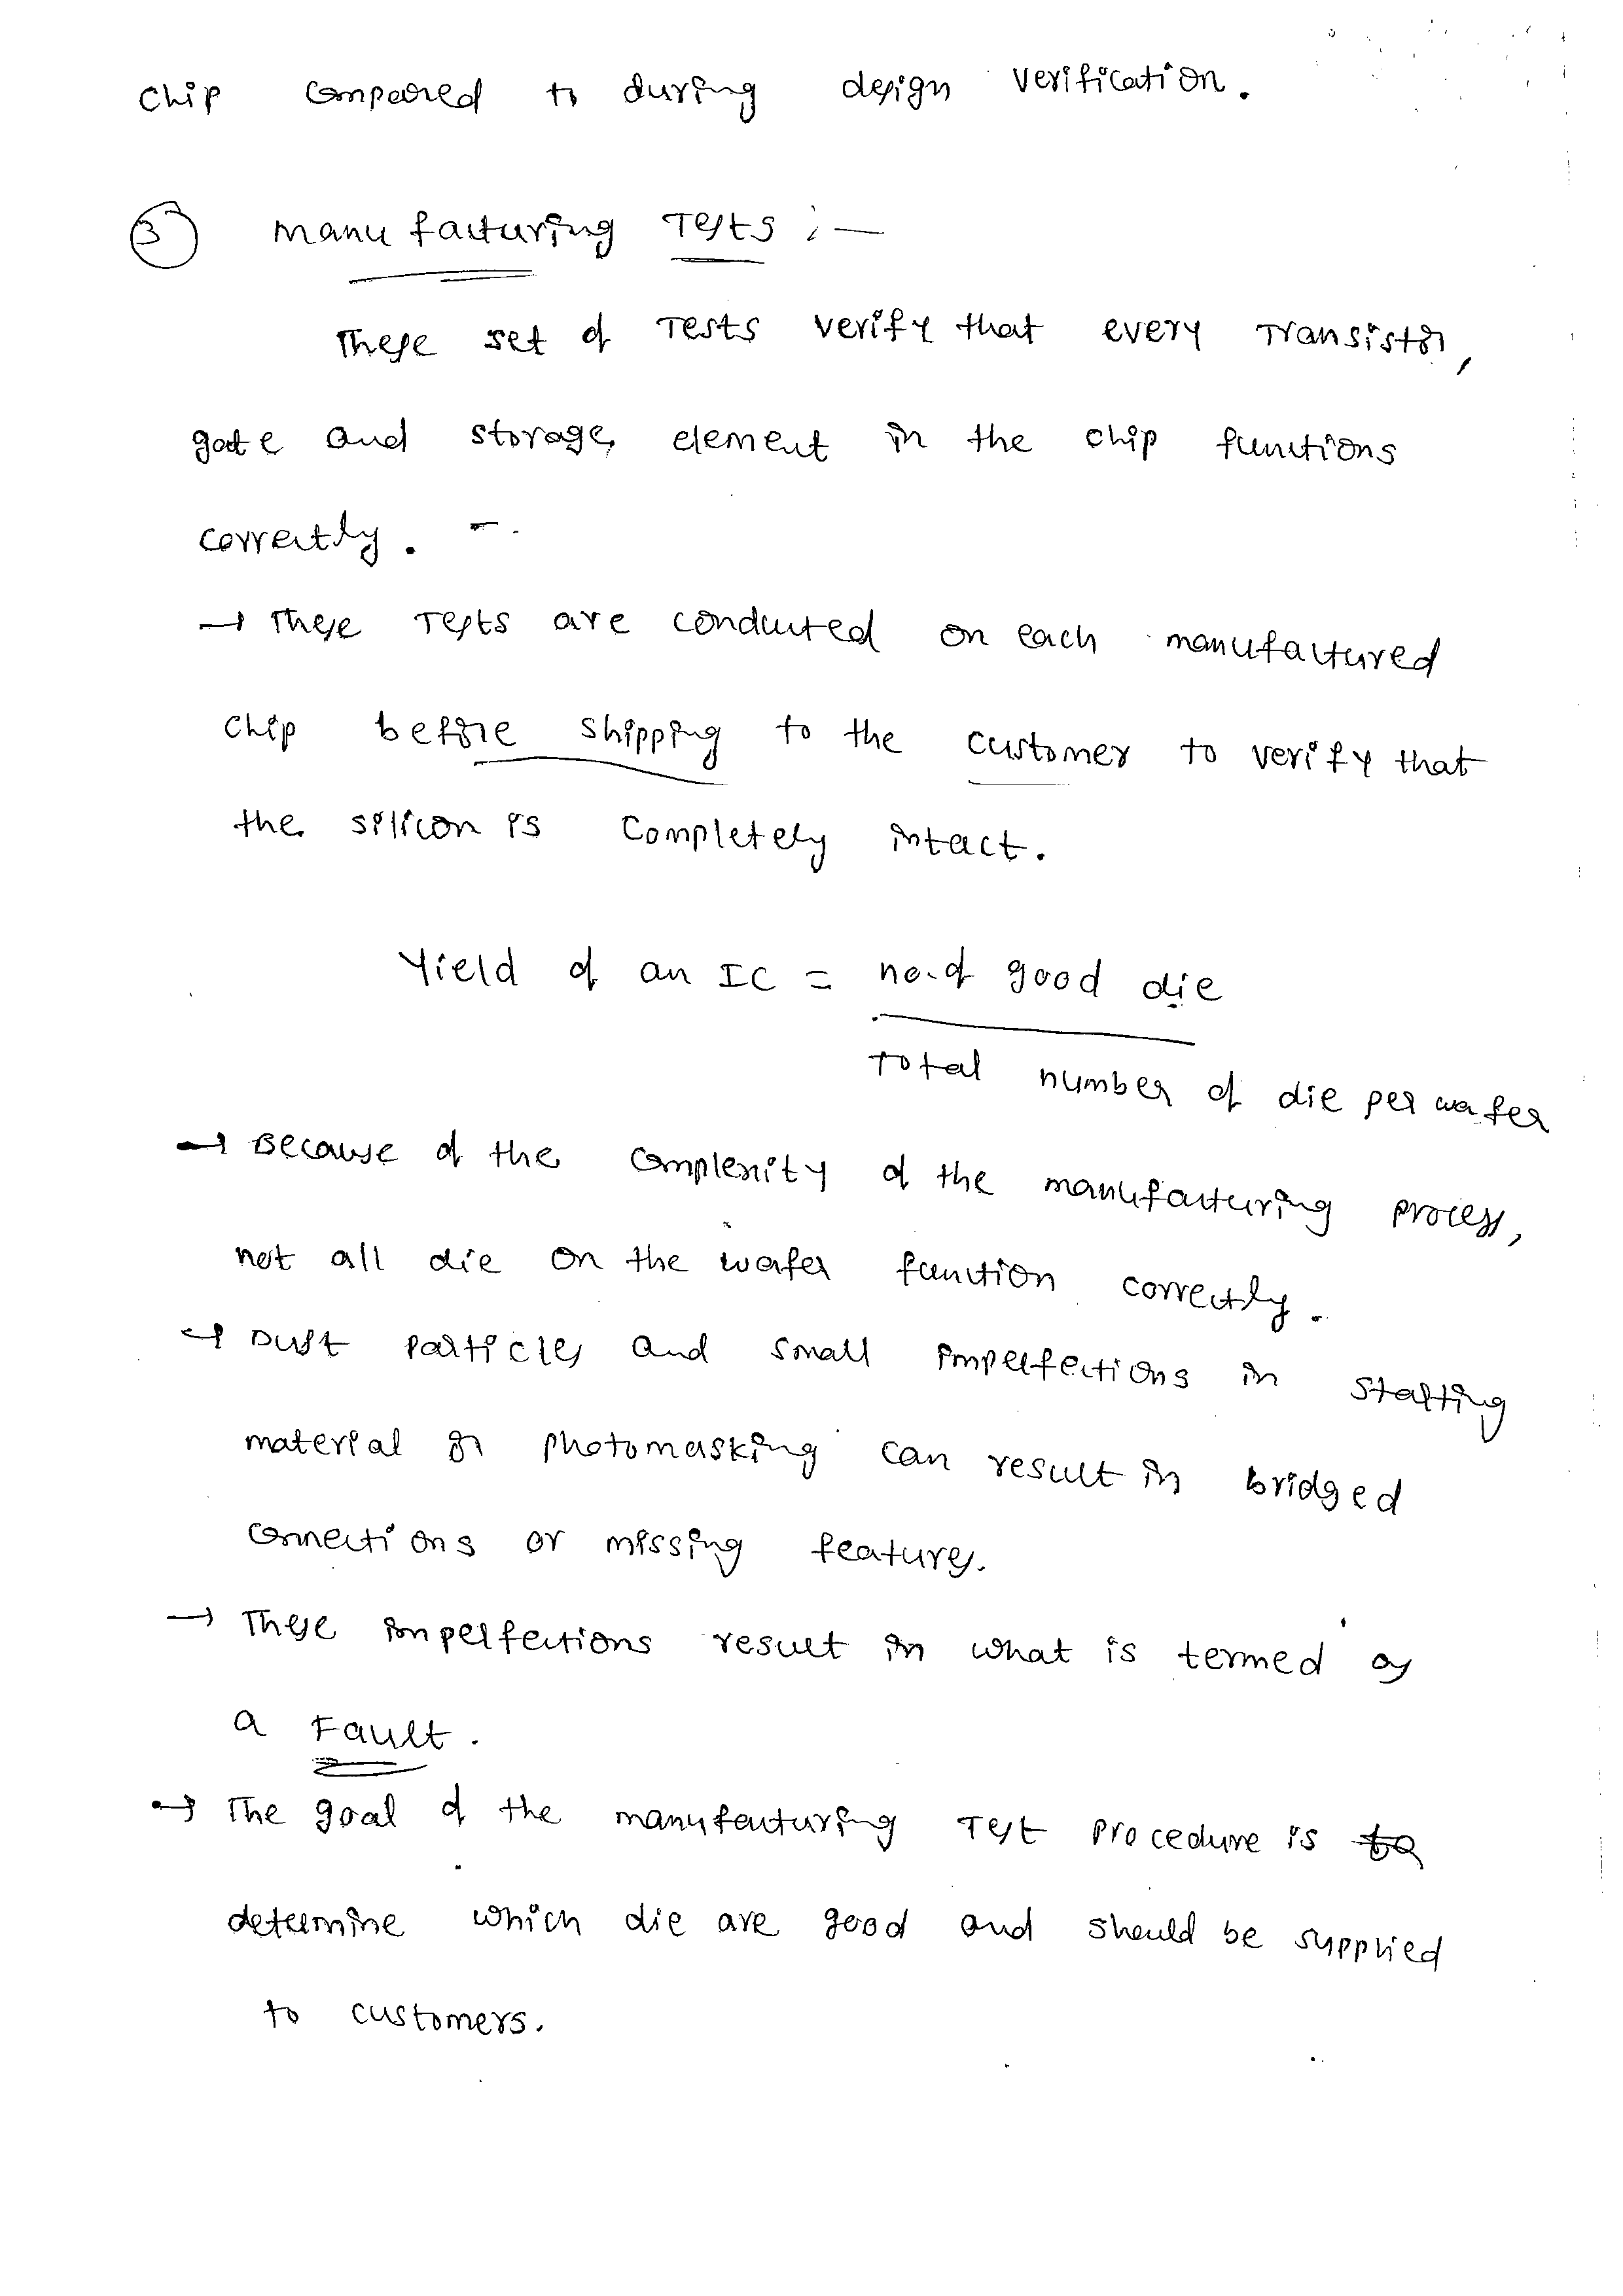 chip compared to during design verification.
3 Manufacturing Tests :—
These set of Tests verify that every Transistor,
gate and storage element in the chip functions
correctly.
→ These Tests are conducted on each manufactured
chip before shipping to the customer to verify that
the silicon is completely intact.
Yield of an IC = no. of good die
Total number of die per wafer
→ Because of the complexity of the manufacturing process,
not all die on the wafer function correctly.
→ Dust particles and small imperfections in starting
material or photomasking can result in bridged
connections or missing features.
→ These imperfections result in what is termed as
a Fault.
→ The goal of the manufacturing Test procedure is to
determine which die are good and should be supplied
to customers.